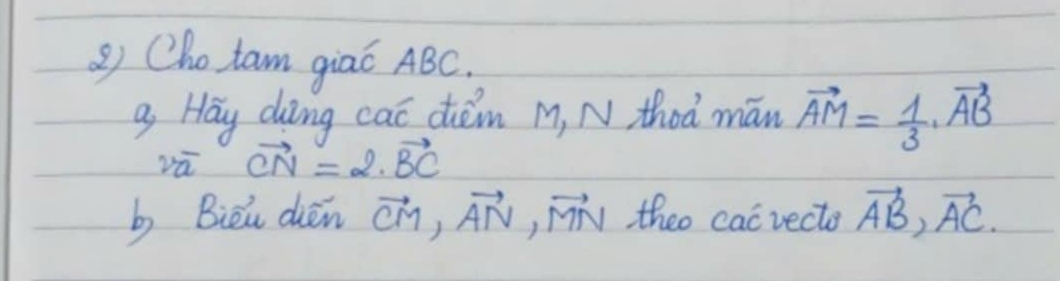 2) Cho tam giác ABC.
a, Hãy dựng các điểm M, N thoả mãn $\overrightarrow{AM} = \frac{1}{3}.\overrightarrow{AB}$
và $\overrightarrow{CN} = 2.\overrightarrow{BC}$
b, Biểu diễn $\overrightarrow{CM}$, $\overrightarrow{AN}$, $\overrightarrow{MN}$ theo các vectơ $\overrightarrow{AB}$, $\overrightarrow{AC}$.